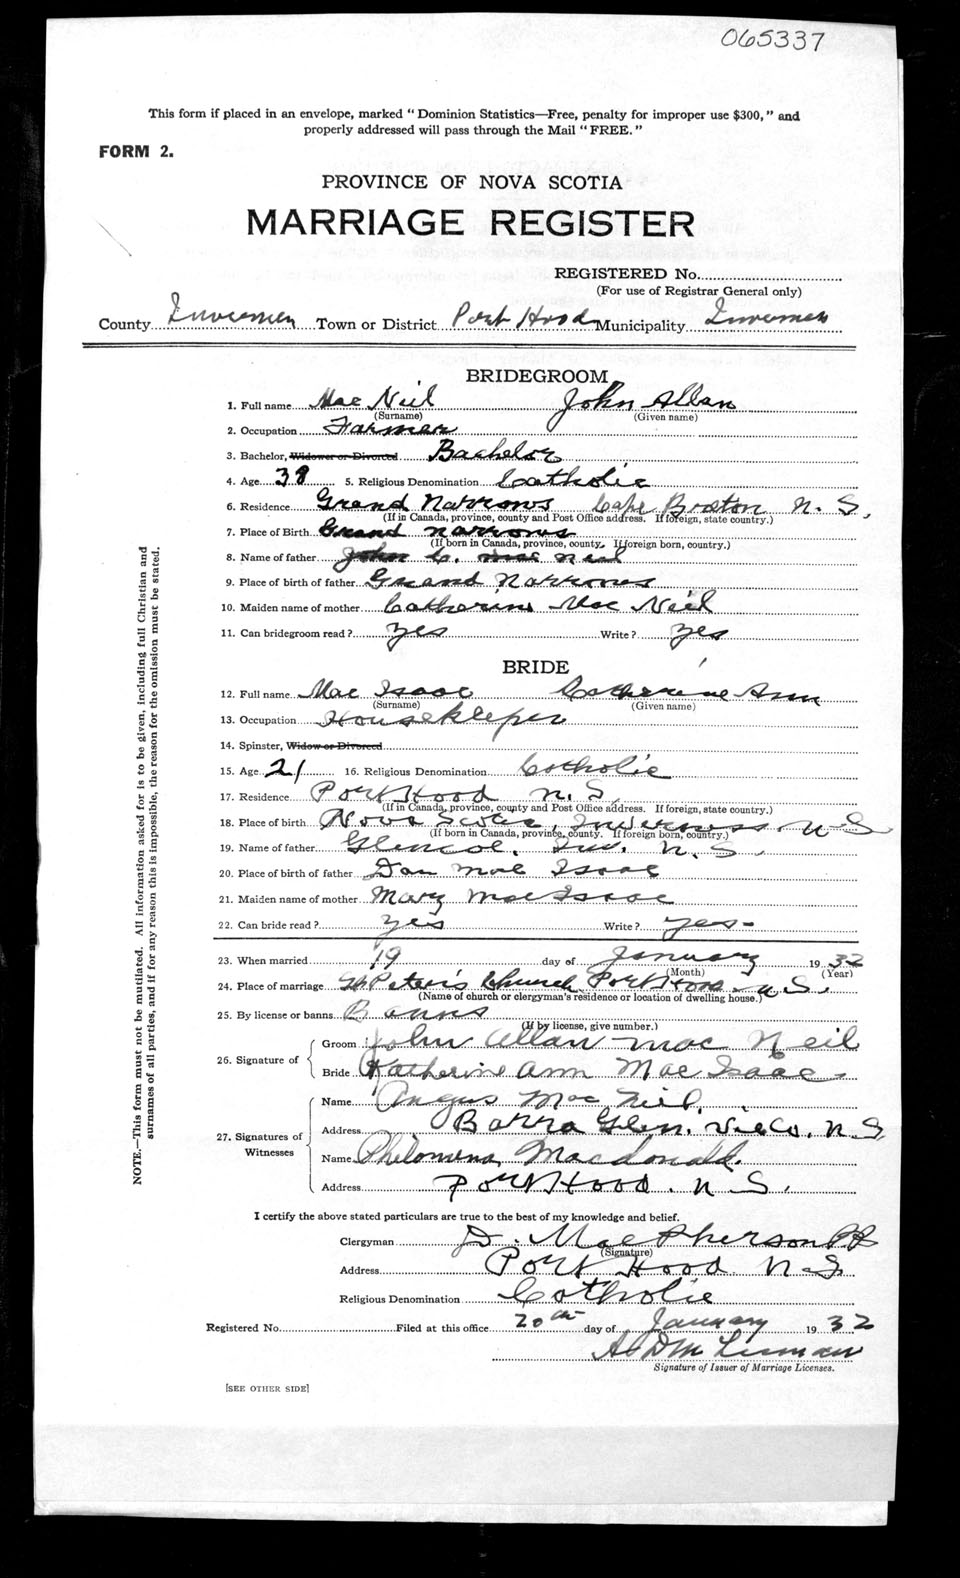 065337
This form if placed in an envelope, marked "Dominion Statistics—Free, penalty for improper use $300," and
properly addressed will pass through the Mail "FREE."
FORM 2.
PROVINCE OF NOVA SCOTIA
MARRIAGE REGISTER
REGISTERED No.
(For use of Registrar General only)
County Inverness Town or District Port Hood Municipality Inverness
BRIDEGROOM
1. Full name Mac Neil John Allan
(Surname) (Given name)
2. Occupation Farmer
3. Bachelor, Widower or Divorced Bachelor
4. Age 38 5. Religious Denomination Catholic
6. Residence Grand Narrows Cape Breton N. S.
(If in Canada, province, county and Post Office address. If foreign, state country.)
7. Place of Birth Grand Narrows
(If born in Canada, province, county. If foreign born, country.)
8. Name of father John C. Mac Neil
9. Place of birth of father Grand Narrows
10. Maiden name of mother Catherine Mac Neil
11. Can bridegroom read? yes Write? yes
BRIDE
12. Full name Mac Isaac Catherine Ann
(Surname) (Given name)
13. Occupation Housekeeper
14. Spinster, Widow or Divorced
15. Age 21 16. Religious Denomination Catholic
17. Residence Port Hood N. S.
(If in Canada, province, county and Post Office address. If foreign, state country.)
18. Place of birth Nova Scotia, Inverness N S
(If born in Canada, province, county. If foreign born, country.)
19. Name of father Glencoe, Inv. N. S.
20. Place of birth of father Dan Mac Isaac
21. Maiden name of mother Mary MacIsaac
22. Can bride read? yes Write? yes
23. When married 19 day of January 1932
(Month) (Year)
24. Place of marriage St Peter's Church Port Hood N. S.
(Name of church or clergyman's residence or location of dwelling house.)
25. By license or banns Banns
(If by license, give number.)
26. Signature of Groom John Allan Mac Neil
Bride Katherine Ann Mac Isaac
27. Signatures of Witnesses Name Angus Mac Neil.
Address Barra Glen. Vic Co. N. S
Name Philomena Macdonald.
Address Port Hood. N S.
I certify the above stated particulars are true to the best of my knowledge and belief.
Clergyman D. MacPherson P P
(Signature)
Address Port Hood N. S.
Religious Denomination Catholic
Registered No. Filed at this office 20th day of January 1932
Signature of Issuer of Marriage Licenses.
[SEE OTHER SIDE]
NOTE.—This form must not be mutilated. All information asked for is to be given, including full Christian and
surnames of all parties, and if for any reason this is impossible, the reason for the omission must be stated.